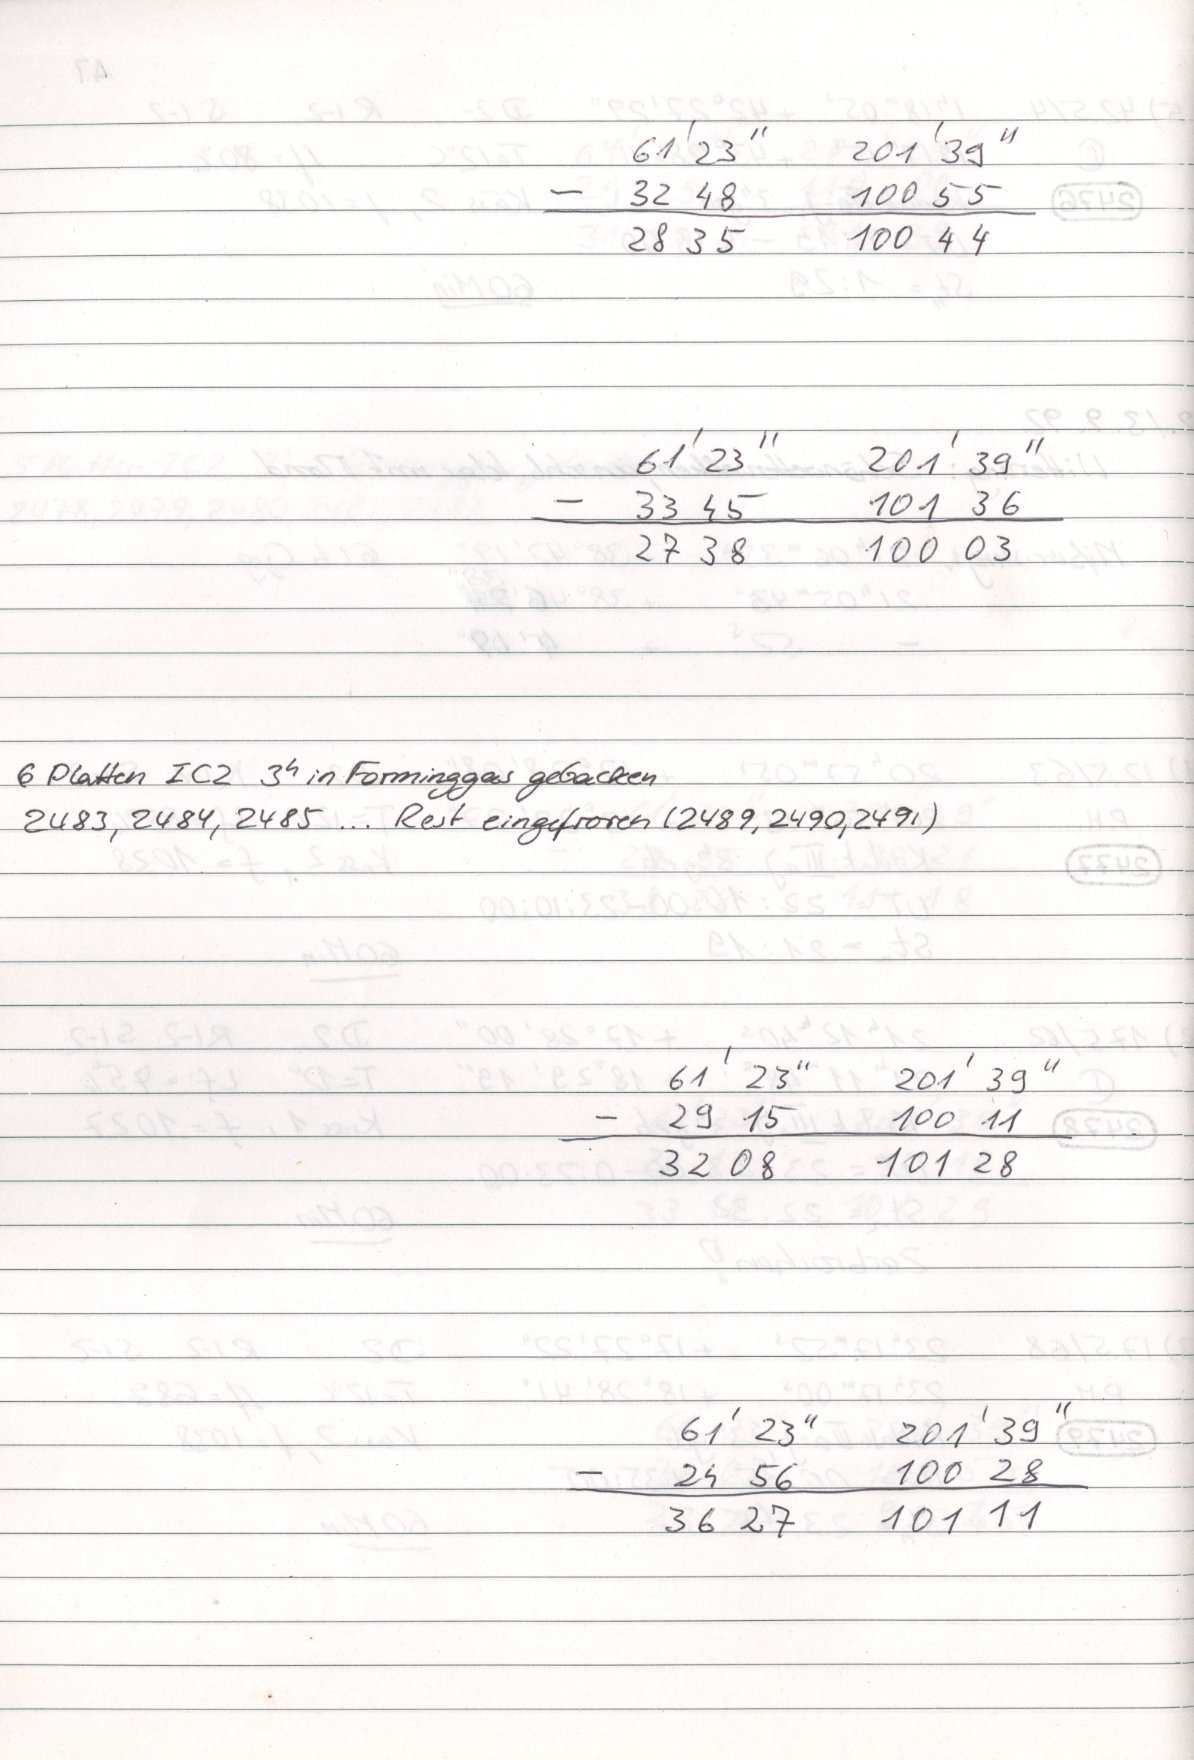 61' 23" 201' 39"
− 32 48 100 55
28 35 100 44
61' 23" 201' 39"
− 33 45 101 36
27 38 100 03
6 Platten IC2 3h in Forminggas gebacken
2483, 2484, 2485 ... Rest eingefroren (2489, 2490, 2491)
61' 23" 201' 39"
− 29 15 100 11
32 08 101 28
61' 23" 201' 39"
− 24 56 100 28
36 27 101 11